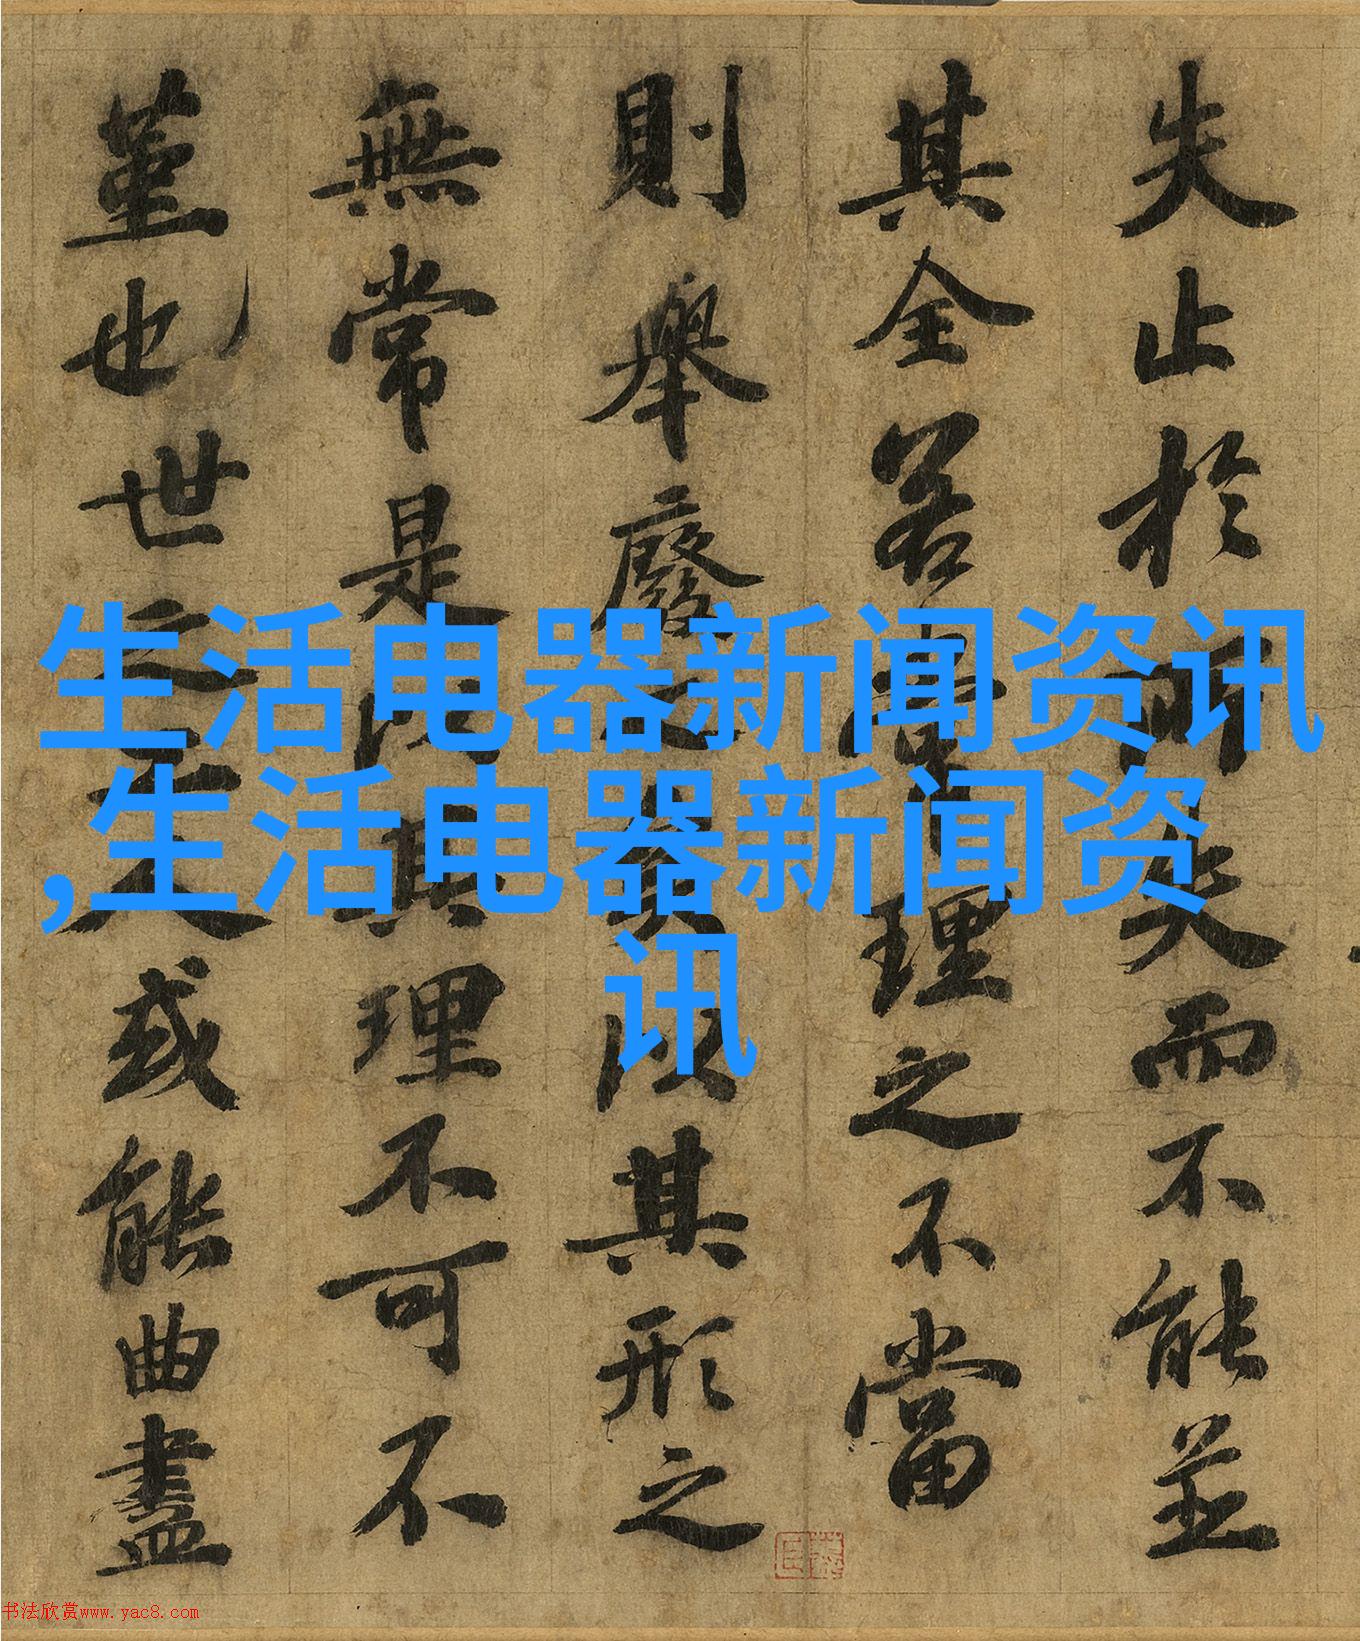 生活电器新闻资讯
,生活电器新闻资
讯
失止於所失而不能並
其全若常理之不當
則舉廢之矣以其形之
無常是以其理不可不
堇也世之工人或能曲盡
书法欣赏www.yac8.com